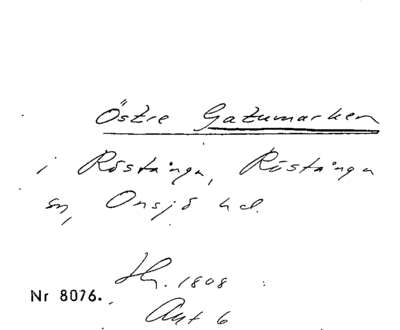 Östre Gatumarken
i Röstånga, Röstånga
sn, Onsjö hd.
Hr. 1808
Nr 8076.
Akt 6